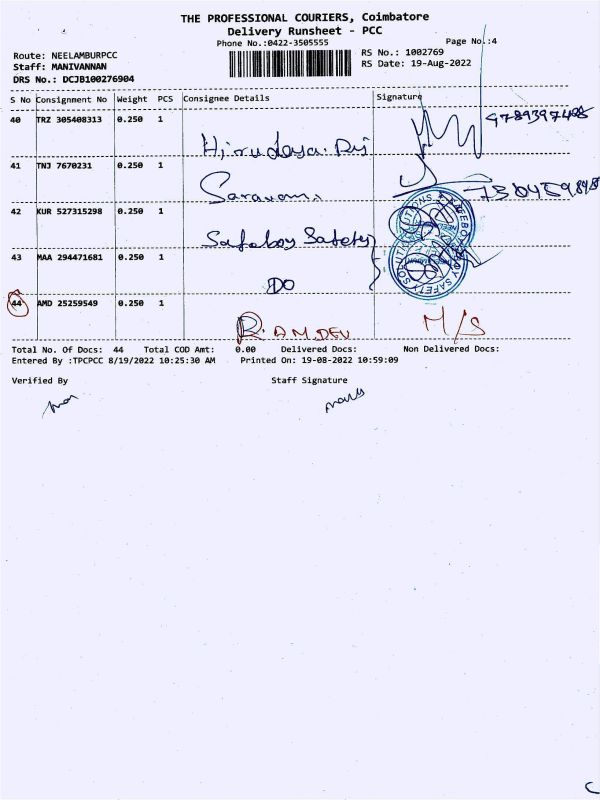 THE PROFESSIONAL COURIERS, Coimbatore
Delivery Runsheet - PCC
Phone No.:0422-3505555 Page No.:4
Route: NEELAMBURPCC RS No.: 1002769
Staff: MANIVANNAN RS Date: 19-Aug-2022
DRS No.: DCJB100276904
S No Consignment No Weight PCS Consignee Details Signature
40 TRZ 305408313 0.250 1
9789397488
41 TNJ 7670231 0.250 1
42 KUR 527315298 0.250 1
Safeboy Safety
43 MAA 294471681 0.250 1
DO
44 AMD 25259549 0.250 1
RAMDEV M/S
Total No. Of Docs: 44 Total COD Amt: 0.00 Delivered Docs: Non Delivered Docs:
Entered By :TPCPCC 8/19/2022 10:25:30 AM Printed On: 19-08-2022 10:59:09
Verified By Staff Signature